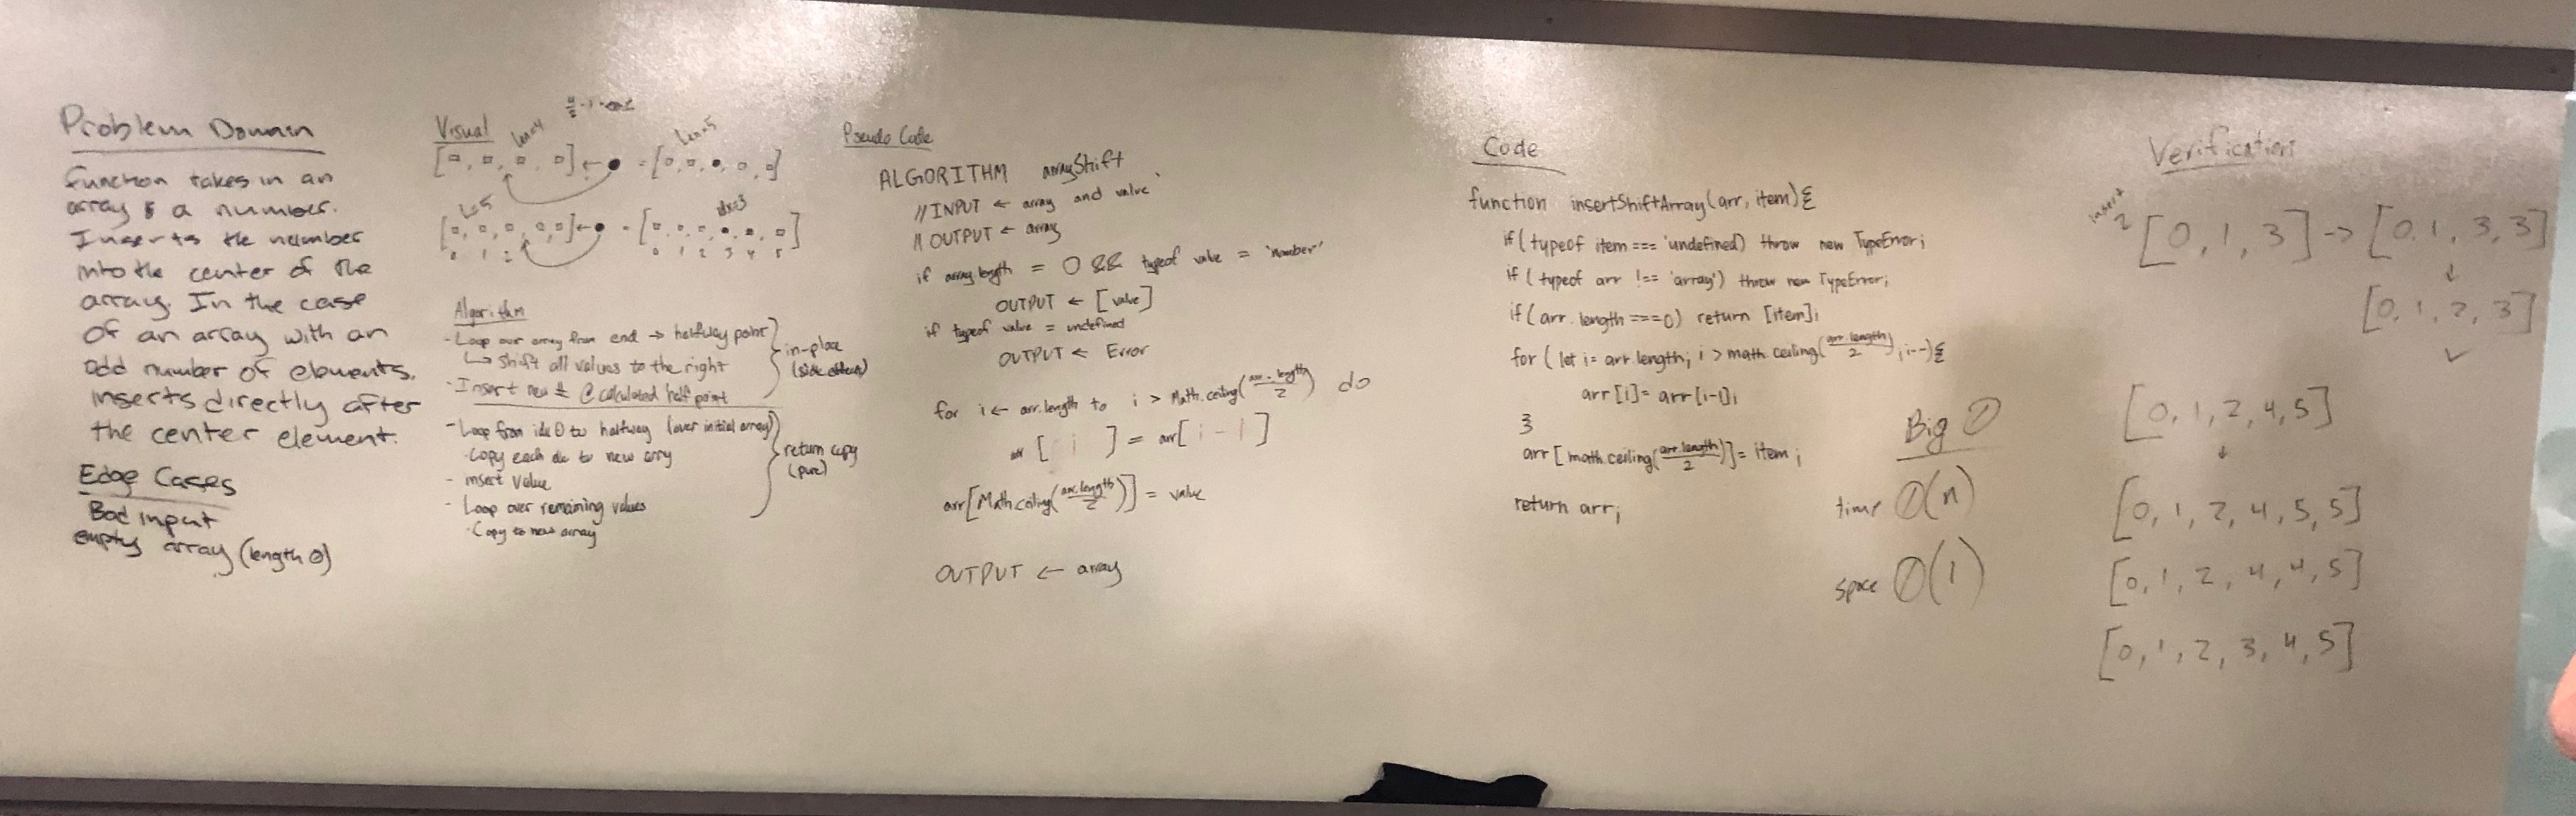 Problem Domain
function takes in an
array & a number.
Inserts the number
into the center of the
array. In the case
of an array with an
odd number of elements,
inserts directly after
the center element.
Edge Cases
Bad input
empty array (length 0)
Visual
len=4
len=5
[□, □, □, □] ← ● = [□, □, ●, □, □]
L=5
idx=3
[□, □, □, □, □] ← ● = [□, □, □, ●, □, □]
0 1 2
0 1 2 3 4 5
Algorithm
- Loop over array from end → halfway point
↳ shift all values to the right
- Insert new # @ calculated half point
in-place
(side effects)
- Loop from idx 0 to halfway (over initial array)
· Copy each ele to new arry
- insert value
- Loop over remaining values
· Copy to new array
return copy
(pure)
Pseudo Code
ALGORITHM arrayShift
// INPUT ← array and value
// OUTPUT ← array
if array.length = 0 && typeof value = 'number'
OUTPUT ← [value]
if typeof value = undefined
OUTPUT ← Error
for i ← arr.length to i > Math.ceiling(arr.length/2) do
arr[i] = arr[i-1]
arr[Math.ceiling(arr.length/2)] = value
OUTPUT ← array
Code
function insertShiftArray(arr, item){
if (typeof item === 'undefined) throw new TypeError;
if (typeof arr !== 'array') throw new TypeError;
if (arr.length === 0) return [item];
for (let i = arr.length; i > math.ceiling(arr.length/2); i--){
arr[i] = arr[i-1];
}
arr[math.ceiling(arr.length/2)] = item;
return arr;
Big O
time O(n)
space O(1)
Verification
insert
2
[0, 1, 3] → [0, 1, 3, 3]
↓
[0, 1, 2, 3]
✓
[0, 1, 2, 4, 5]
↓
[0, 1, 2, 4, 5, 5]
[0, 1, 2, 4, 4, 5]
[0, 1, 2, 3, 4, 5]